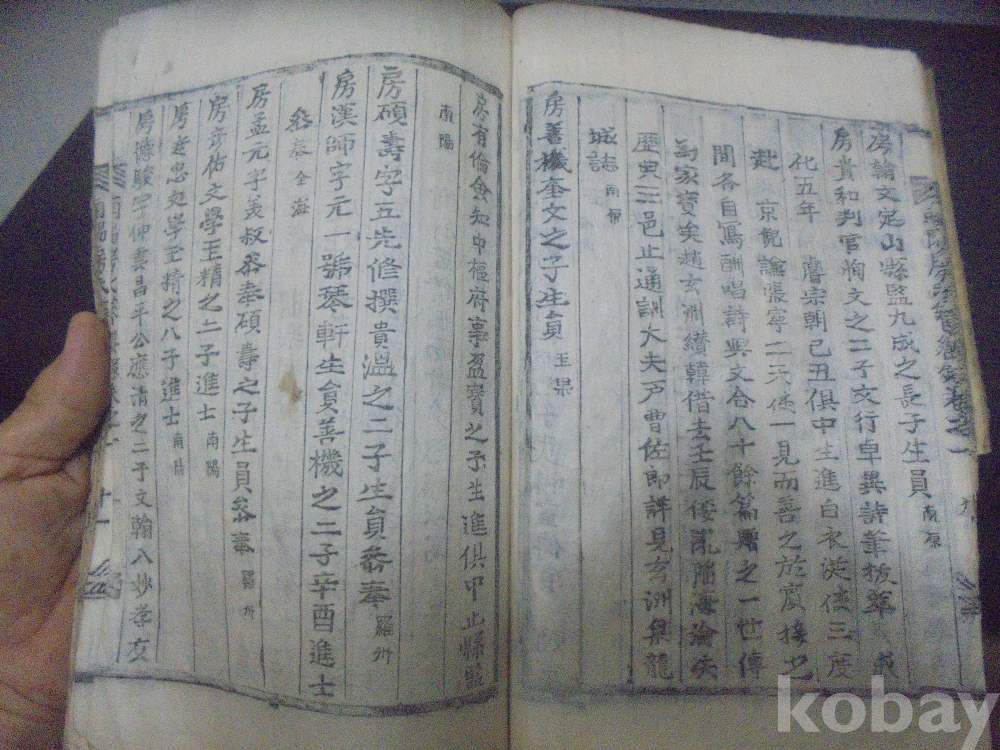 房翰文定山縣監九成之長子生員 南原
房貴和判官恂文之二子文行卓異詩筆拔萃 成
化五年 睿宗朝己丑俱中生進白衣從使三度
赴 京魁論張寧二天使一見而善之於
間各自寫酬唱詩與文合八十餘篇贈之一世傳
為家寶矣趙玄洲纘韓借去壬辰倭亂陷海淪失
歷典三邑止通訓大夫戶曹佐郎詳見玄洲集龍
城誌 南原
房善機奎文之子生員 玉果
房有倫僉知中樞府事盈寶之子生進俱中止縣監
南陽
房碩壽字五先修撰貴溫之二子生員參奉 羅州
房漢師字元一號琴軒生員善機之二子辛酉進士
參奉 金海
房孟元字義叔參奉碩壽之子生員參奉 羅州
房彦佑文學王精之二子進士 南陽
房老忠文學王精之八子進士 南陽
房德駿字仲 昌平公應清之二子文翰八妙孝友